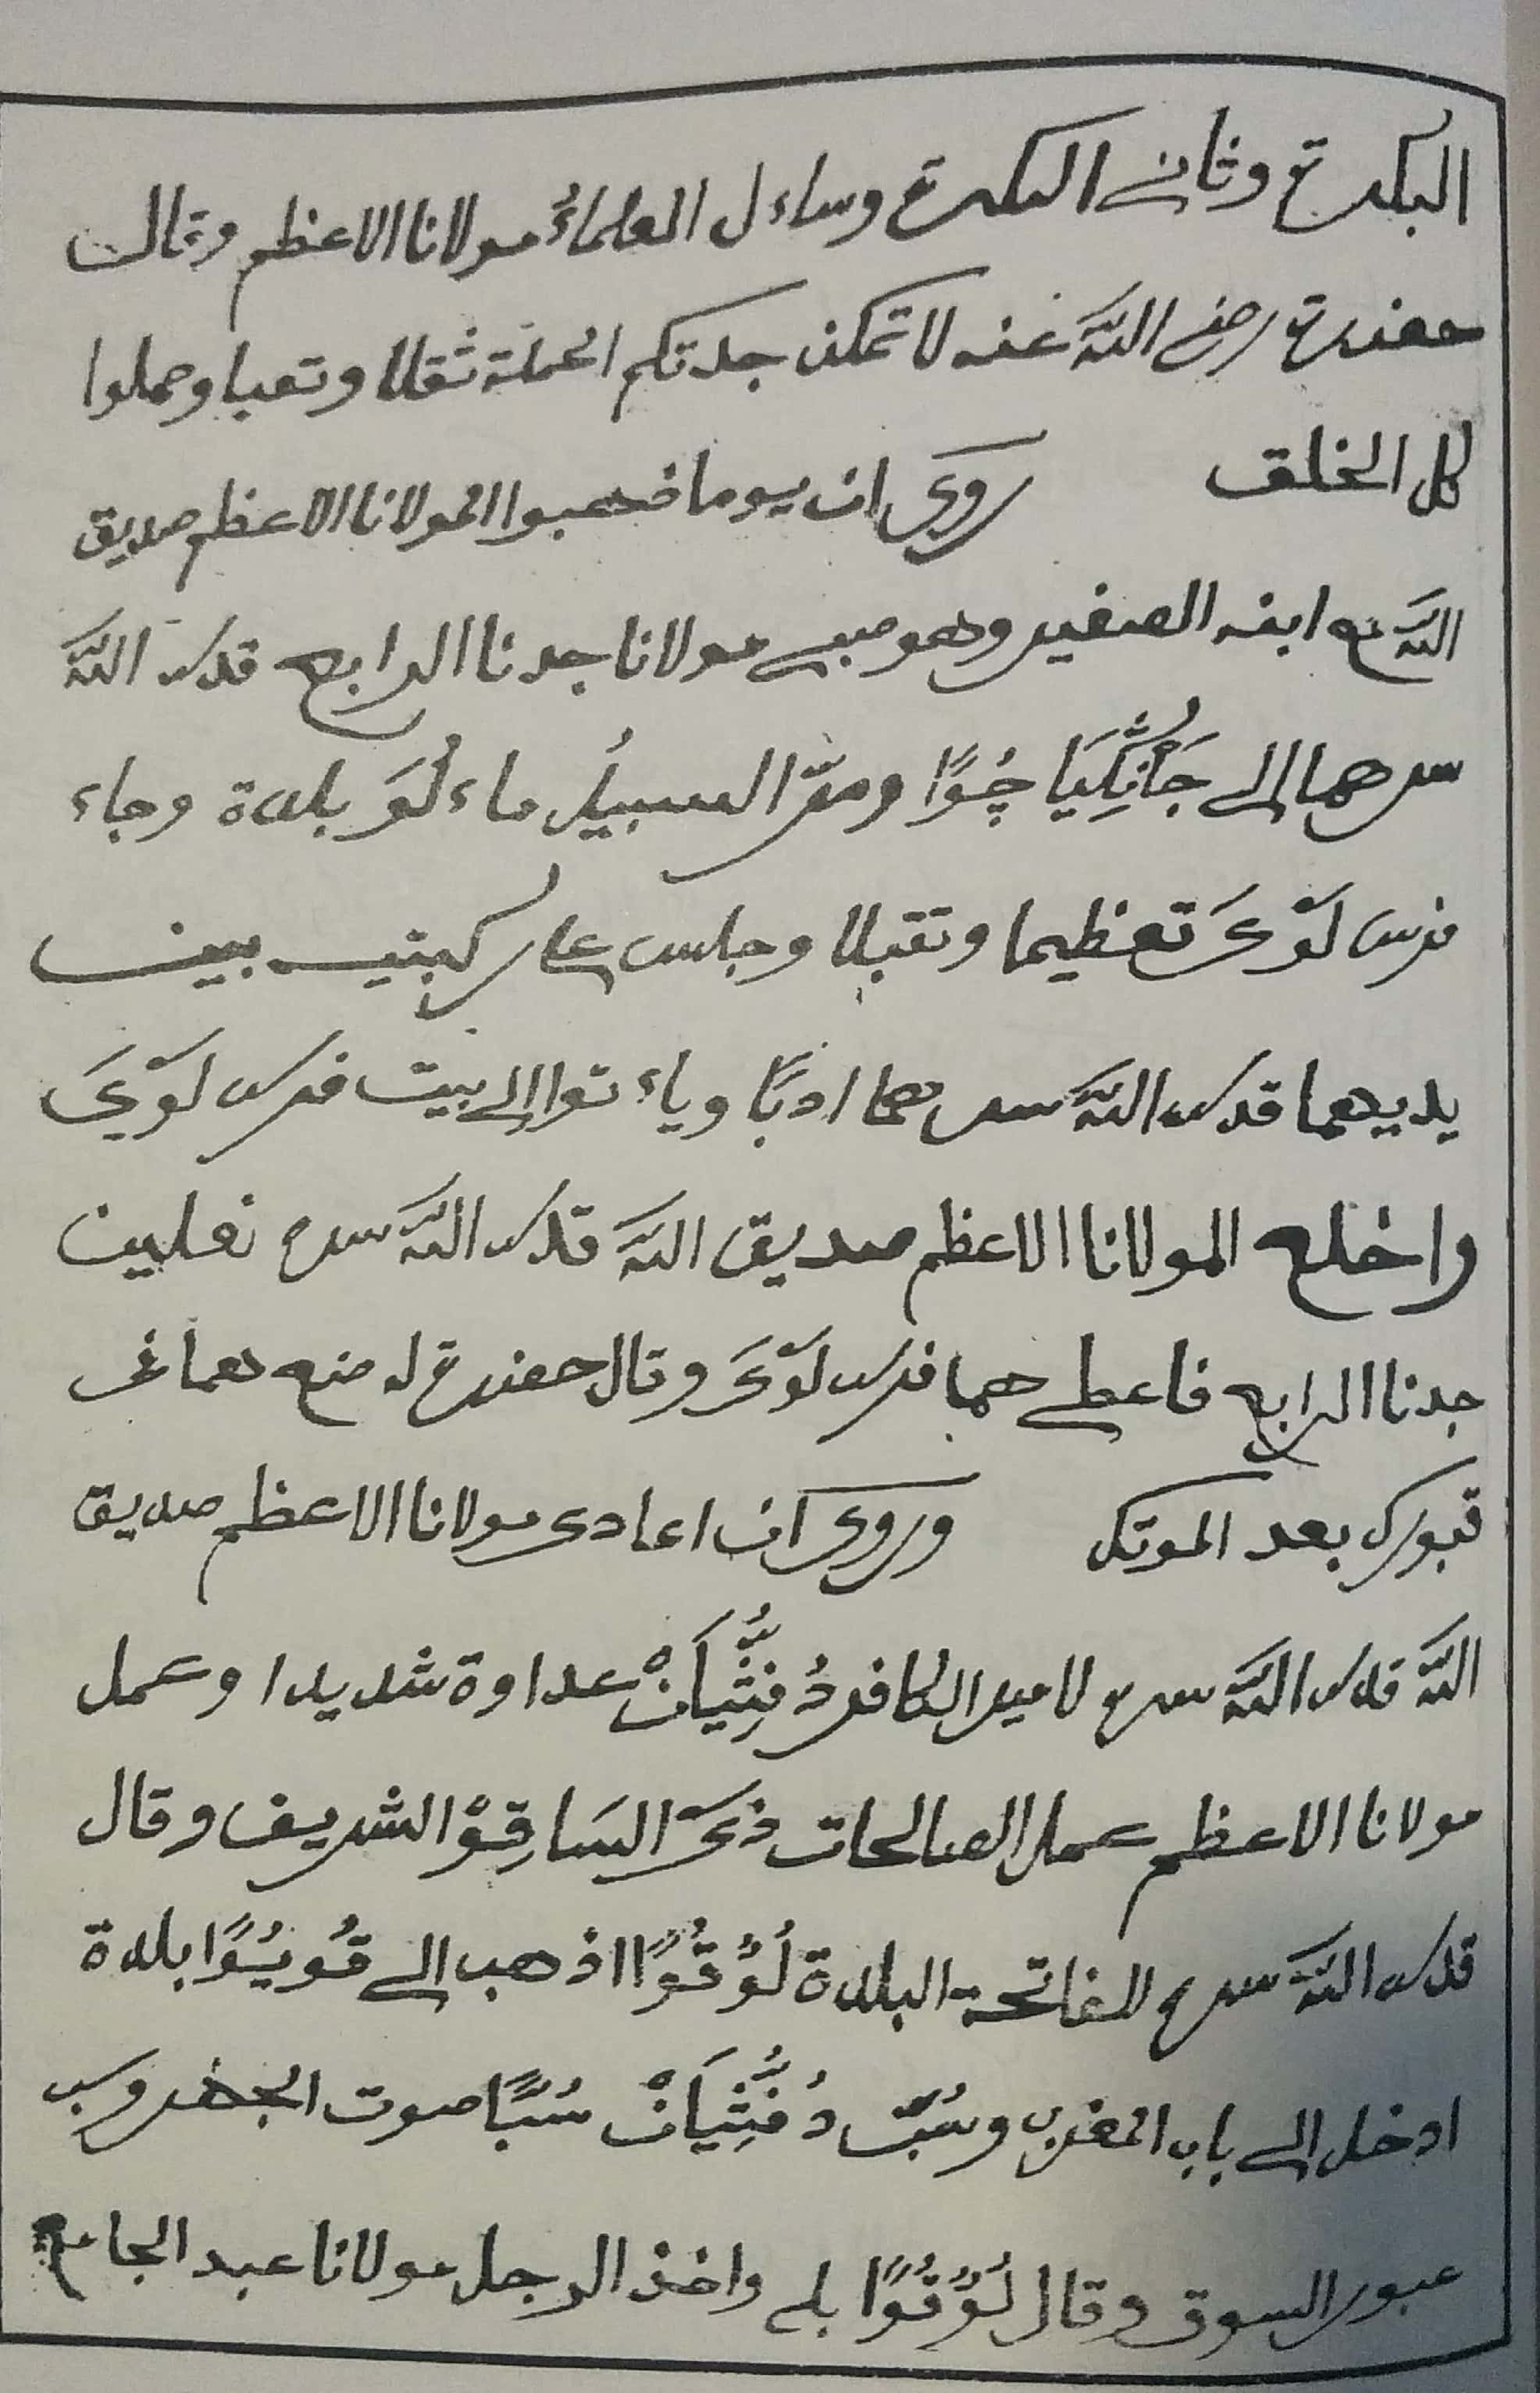 البكرة وثاني البكرة وساءل العلماءُ مولانا الاعظم وقال
حضرة رضي اللّٰه عنه لا تمكن جدتكم الحملة ثقلا وتعبا وحملوا
كل الخلق روى ان يوما ذهبوا المولانا الاعظم صديق
اللّٰه مع ابنه الصغير وهو صبي مولانا جدنا الرابع قدس اللّٰه
سرهما الى جَانْكِيَا چُوًا ومرّ السبيل ماء لُوَ بلدة وجاء
فرس لَوّىَ تعظيما وتقبلا وجلس على ركبتيـه بين
يديهما قدس اللّٰه سرهما ادبًا وياءتوا الى بيت فرس لَوّىَ
واخلع المولانا الاعظم صديق اللّٰه قدس اللّٰه سره نعلين
جدنا الرابع فاعطى هما فرس لَوّىَ وقال حضرة له ضع هما في
قبورك بعد الموتك وروى ان اعادى مولانا الاعظم صديق
اللّٰه قدس اللّٰه سره لامير الكافر عداوة شديدا وعمل
مولانا الاعظم عمل الصالحات ذكر الشريف وقال
قدس اللّٰه سره للفاتحة البلدة لُؤُقُوًا اذهب الى قُويُوًا بلدة
ادخل الى باب المغرب وسُبّ سُبًّا صوت الجهر وسب
عبور السوق وقال لُؤُقُوًا بلى واخذ الرجل مولانا عبد الجامع